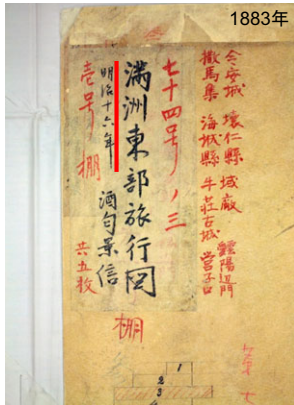 1883年
令安城 壊仁縣 城廠 靉陽邊門
撒馬集 海城縣 牛荘古城 営子口
七十四号ノ三
満洲東部旅行図
明治十六年 酒匂景信
壱号 棚 共五枚
棚
1
2
3